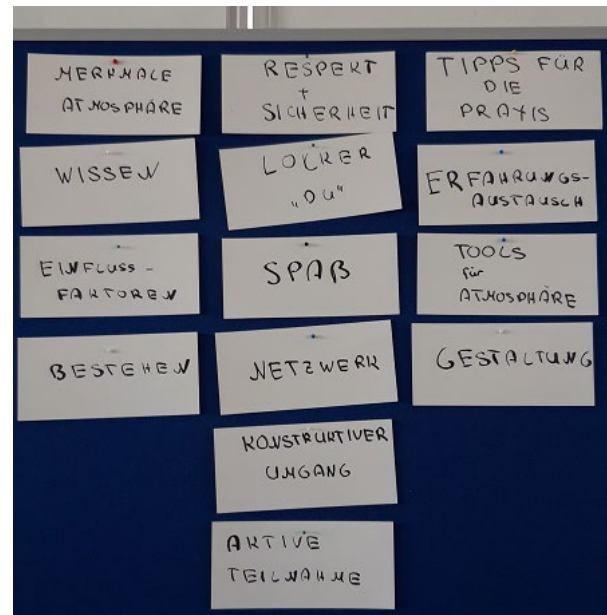 MERKMALE
ATMOSPHÄRE
WISSEN
EINFLUSS-
FAKTOREN
BESTEHEN
RESPEKT
+
SICHERHEIT
LOCKER
„DU“
SPAß
NETZWERK
KONSTRUKTIVER
UMGANG
AKTIVE
TEILNAHME
TIPPS FÜR
DIE
PRAXIS
ERFAHRUNGS-
AUSTAUSCH
TOOLS
für
ATMOSPHÄRE
GESTALTUNG